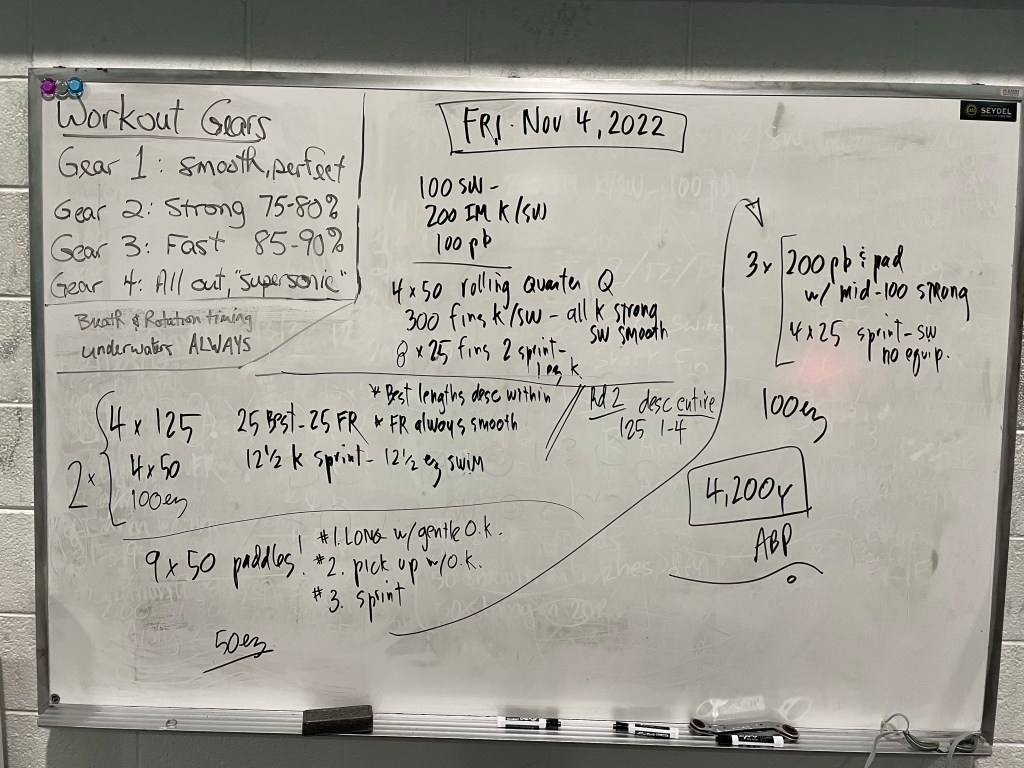 Workout Gears
Gear 1: smooth, perfect
Gear 2: Strong 75-80%
Gear 3: Fast 85-90%
Gear 4: All out, "supersonic"
Breath & Rotation timing
underwaters ALWAYS
SEYDEL
FRI. Nov 4, 2022
100 SW -
200 IM K/SW
100 pb
4 x 50 rolling quarter Q
300 fins k/sw - all k strong
sw smooth
8 x 25 fins 2 sprint -
1 ez k
2 x
4 x 125 25 Bst - 25 FR
* Best lengths desc within
* FR always smooth
Rd 2 desc entire
125 1-4
4 x 50 12 1/2 k sprint - 12 1/2 ez swim
100 ez
9 x 50 paddles!
#1. LONG w/gentle O.k.
#2. pick up w/O.k.
#3. sprint
50 ez
3 x
200 pb & pad
w/ mid-100 strong
4 x 25 sprint - sw
no equip.
100 ez
4,200y
ABP